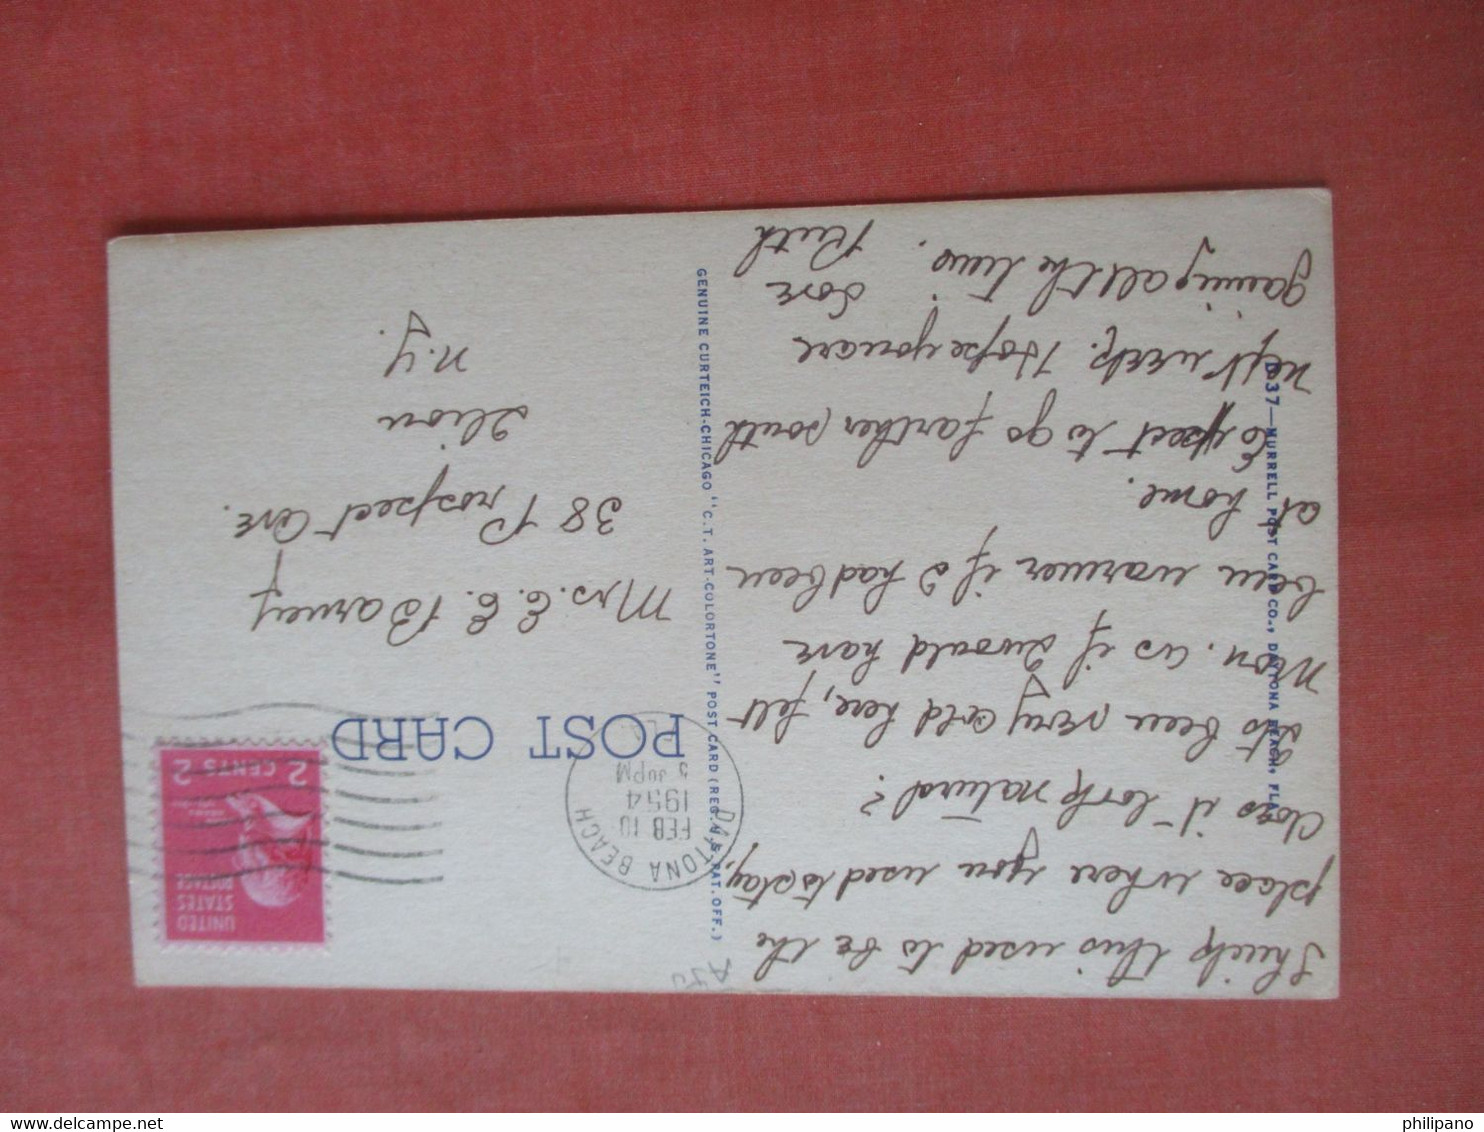 I think this used to be the
place where you used to stay,
does it look natural?
Its been very cold here, felt
Mon. as if I would have
been warmer if I had been
at home.
Expect to go farther south
next week. Hope you are
gaining all the time.
Love
Ruth
D-37—MURRELL POST CARD CO., DAYTONA BEACH, FLA.
GENUINE CURTEICH-CHICAGO "C.T. ART-COLORTONE" POST CARD (REG. U.S. PAT. OFF.)
POST CARD
DAYTONA BEACH
FEB 10
1954
5 30 PM
FLA.
UNITED
STATES
POSTAGE
2 CENTS 2
Mrs. E. E. Barney
38 Prospect Ave.
Ilion
N.Y.
philipano
delcampe.net